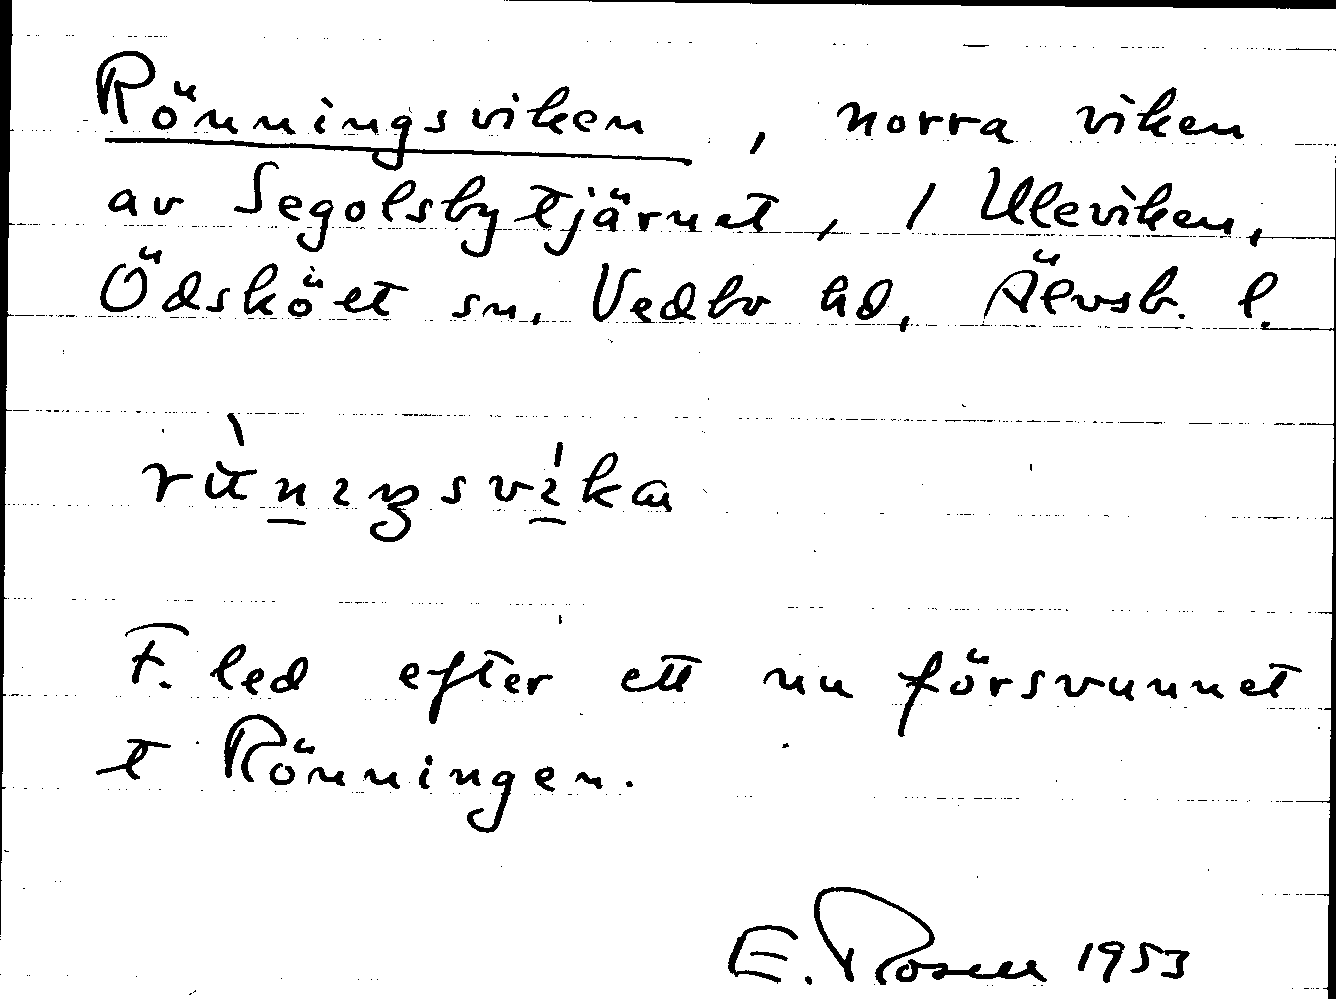 Rönningsviken, norra viken
av Segolsbytjärnet, / Uleviken,
Ödsköet sn, Vedbo hd, Älvsb. l.
F. led efter ett nu försvunnet
t Rönningen.
E. Rosell 1953